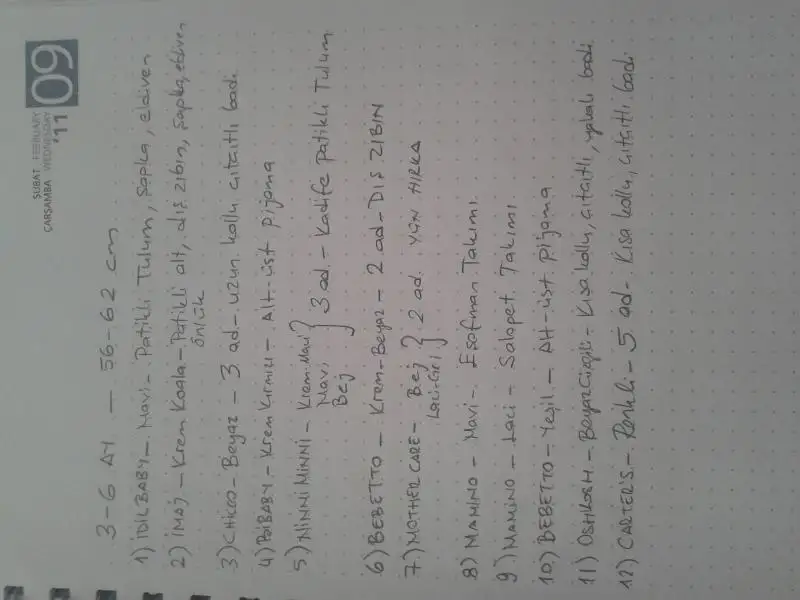 ŞUBAT FEBRUARY
ÇARŞAMBA WEDNESDAY
'11
09
3-6 AY - 56-62 cm
1) İDİLBABY - Mavi - Patikli Tulum, Şapka, eldiven
2) İMAJ - Krem Koala - Patikli alt, dış zıbın, şapka, eldiven
önlük
3) CHİCCO - Beyaz - 3 ad - uzun kollu çıtçıtlı badi
4) BABY - Krem Kırmızı - Alt-üst pijama
5) NİNNİ MİNNİ - Krem-Mavi
Mavi
Bej } 3 ad. - Kadife Patikli Tulum
6) BEBETTO - Krem-Beyaz - 2 ad - DIŞ ZIBIN
7) MOTHER CARE - Bej
Laci-Gri } 2 ad. YÜN HIRKA
8) MAMİNO - Mavi - Eşofman Takımı
9) MAMİNO - Laci - Salopet Takımı
10) BEBETTO - Yeşil - Alt-üst pijama
11) OSHKOSH - Beyaz Çizgili - Kısa kollu, çıtçıtlı, yakalı badi
12) CARTER'S - Renkli - 5 ad - Kısa kollu, çıtçıtlı badi